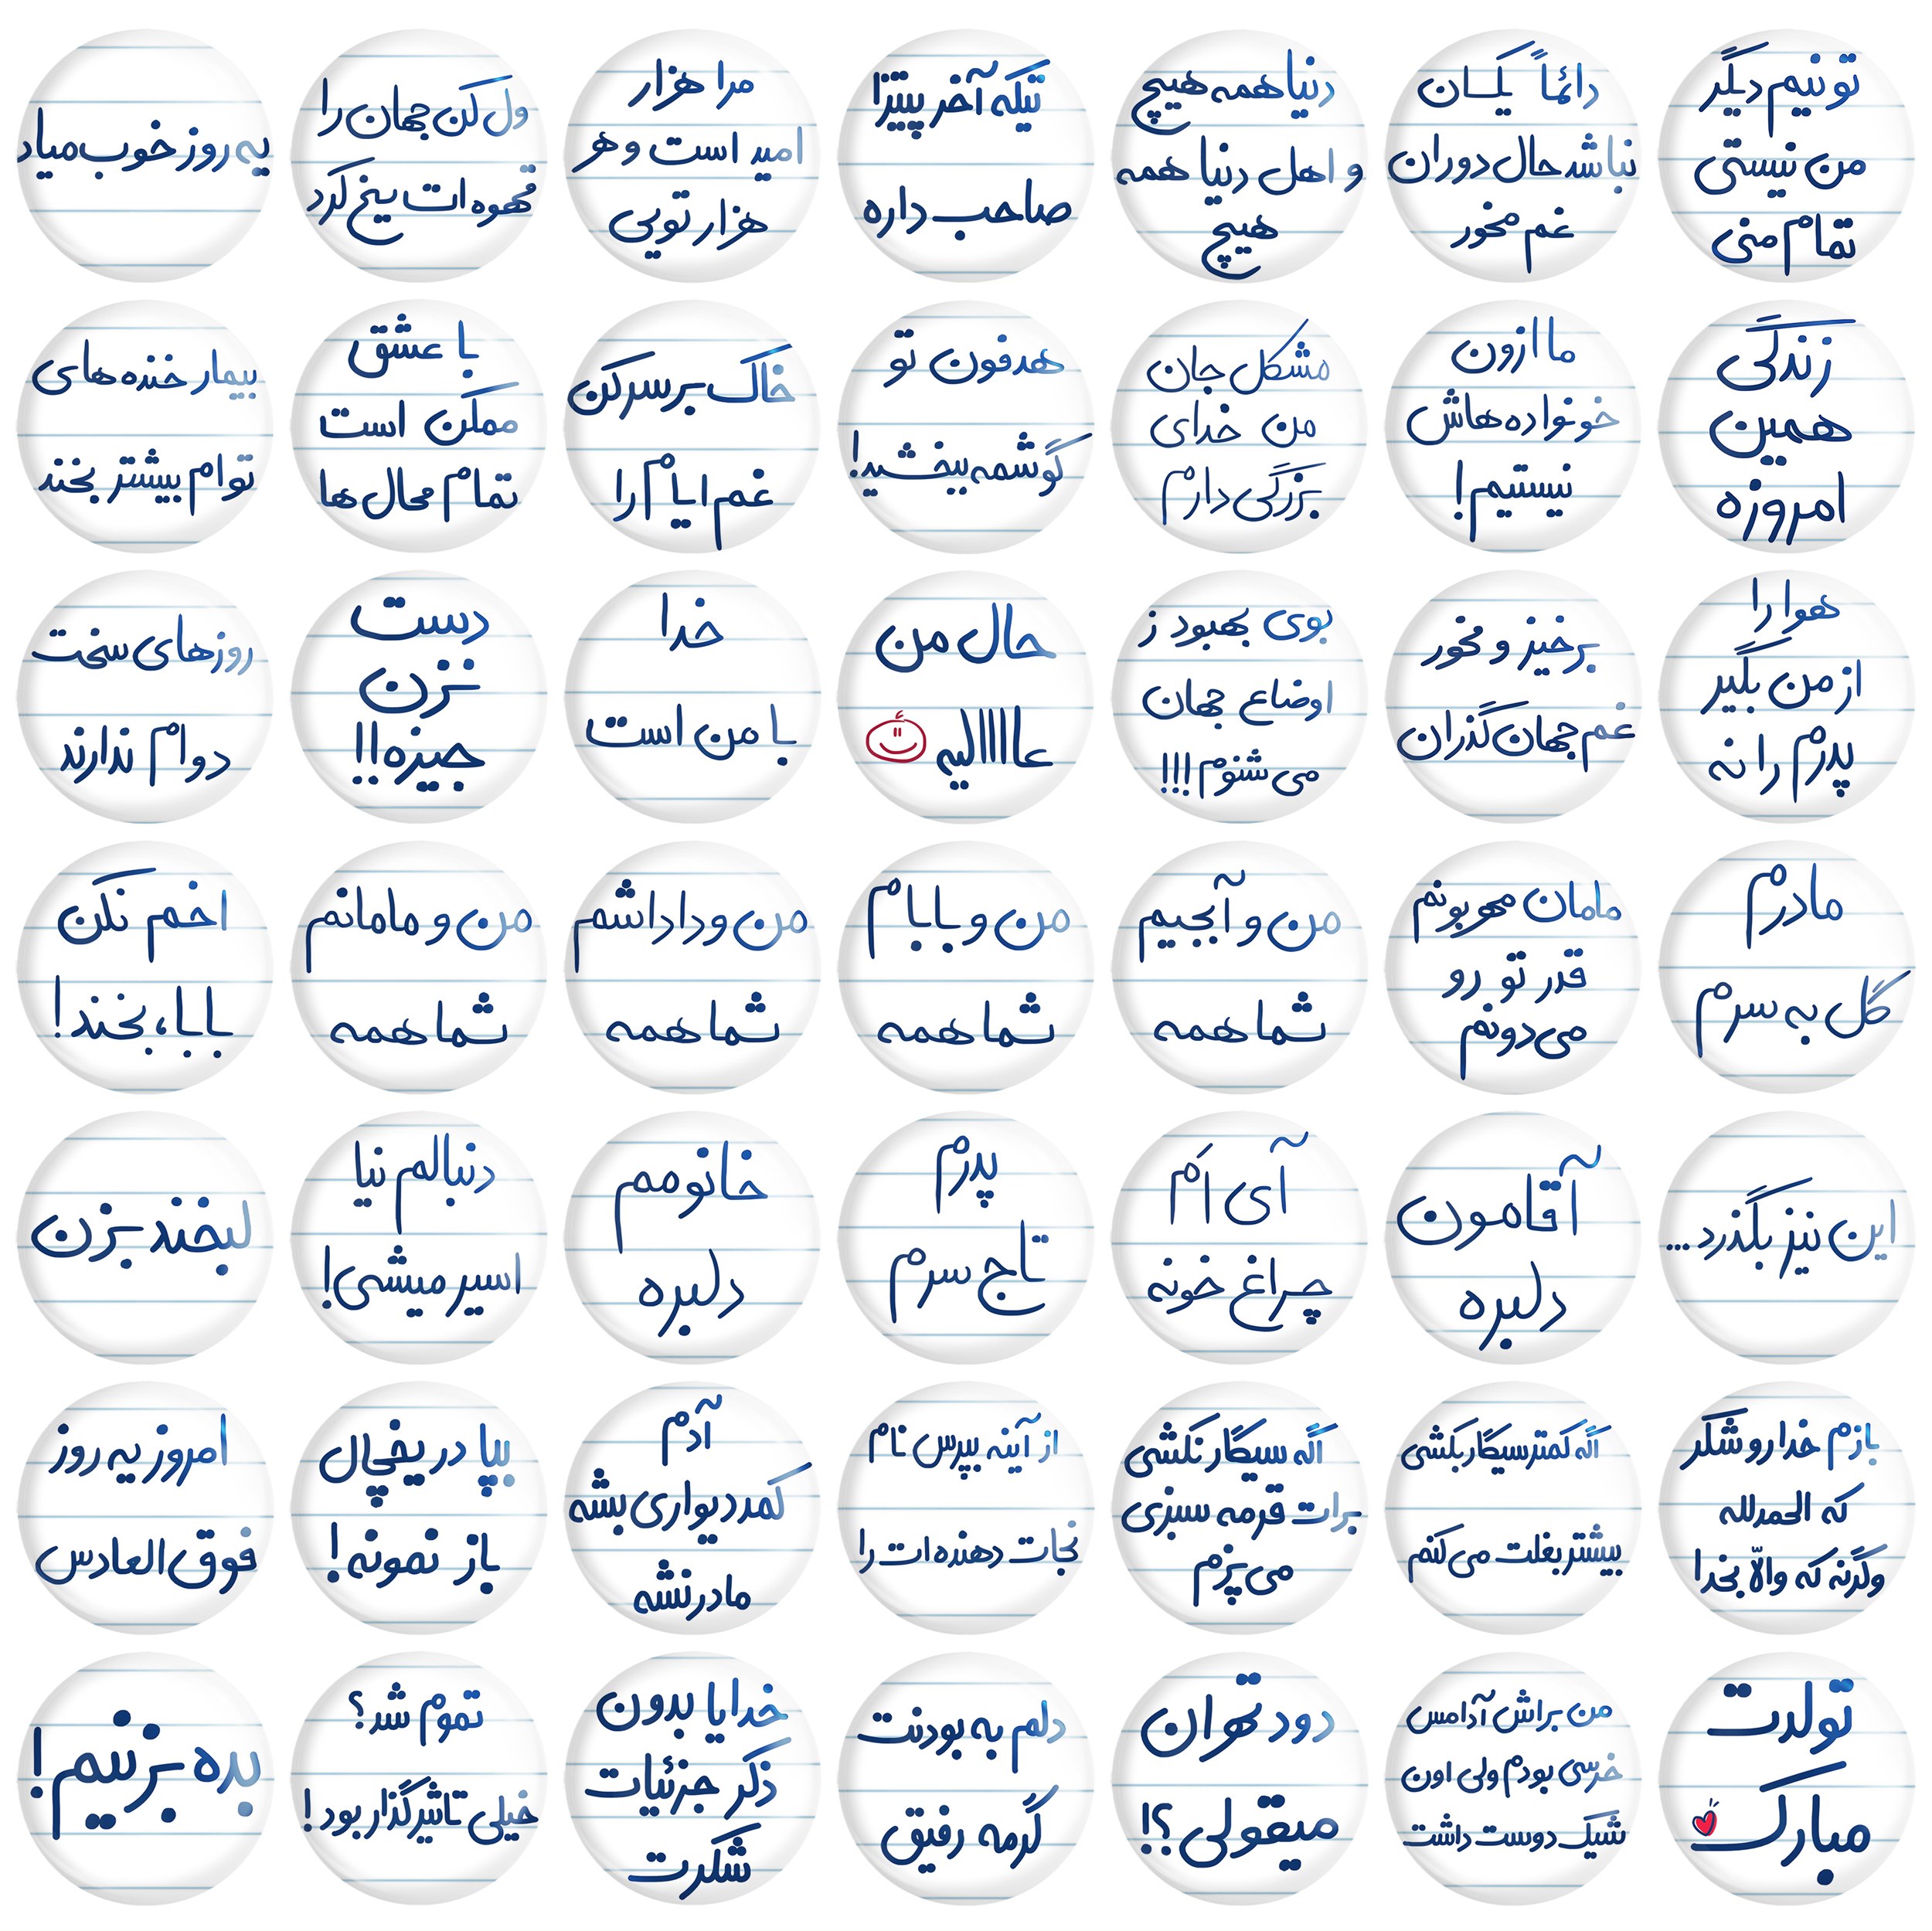 تو نیم دیگر
من نیستی
تمام منی
دائماً یکسان
نباشد حال دوران
غم مخور
دنیا همه هیچ
و اهل دنیا همه
هیچ
تیکه آخر پیتزا
صاحب داره
مرا هزار
امید است و هر
هزار تویی
ول کن جهان را
قهوه ات یخ کرد
یه روز خوب میاد
زندگی
همین
امروزه
ما ازون
خونواده هاش
نیستیم!
مشکل جان
من خدای
بزرگی دارم
هدفون تو
گوشمه ببخشید!
خاک بر سر کن
غم ایام را
با عشق
ممکن است
تمام محال ها
بیمار خنده های
توام بیشتر بخند
هوا را
از من بگیر
پدرم را نه
برخیز و مخور
غم جهان گذران
بوی بهبود ز
اوضاع جهان
می شنوم!!!
حال من
عااااالیه
خدا
با من است
دست
نزن
جیزه!!
روزهای سخت
دوام ندارند
مادرم
گل به سرم
مامان مهربونم
قدر تو رو
می دونم
من و آبجیم
شما همه
من و بابام
شما همه
من و داداشم
شما همه
من و مامانم
شما همه
اخم نکن
بابا، بخند!
این نیز بگذرد...
آقامون
دلبره
آی اَم
چراغ خونه
پدرم
تاج سرم
خانومم
دلبره
دنبالم نیا
اسیر میشی!
لبخند بزن
بازم خدارو شکر
که الحمدلله
وگرنه که والّا بخدا
اگه کمتر سیگار بکشی
بیشتر بغلت می کنم
اگه سیگار نکشی
برات قرمه سبزی
می پزم
از آینه بپرس نام
نجات دهنده ات را
آدم
کمد دیواری بشه
مادر نشه
بپا در یخچال
باز نمونه!
امروز یه روز
فوق العادس
تولدت
مبارک
من براش آدامس
خرسی بودم ولی اون
شیک دوست داشت
دود تهران
میقولی؟!
دلم به بودنت
گرمه رفیق
خدایا بدون
ذکر جزئیات
شکرت
تموم شد؟
خیلی تاثیرگذار بود!
بده بزنیم!